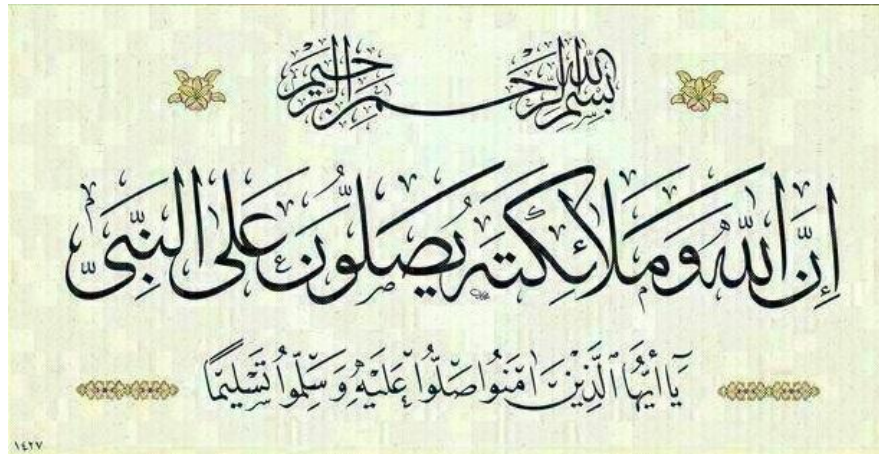 بِسْمِ اللهِ الرَّحْمنِ الرَّحِيمِ
إِنَّ اللهَ وَمَلَائِكَتَهُ يُصَلُّونَ عَلَى النَّبِيِّ
يَا أَيُّهَا الَّذِيْنَ اٰمَنُوا صَلُّوا عَلَيْهِ وَسَلِّمُوا تَسْلِيمًا
١٤٢٧